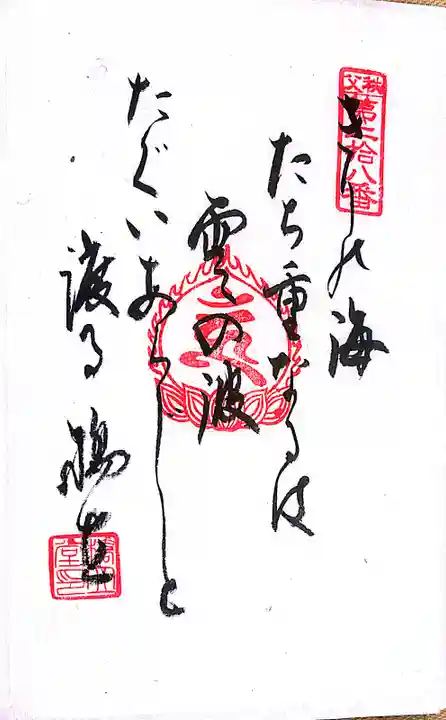 秩父第二拾八番
きりの海
たち重なるは
雲の波
たぐいあらじと
渡る橋立
橋立堂印